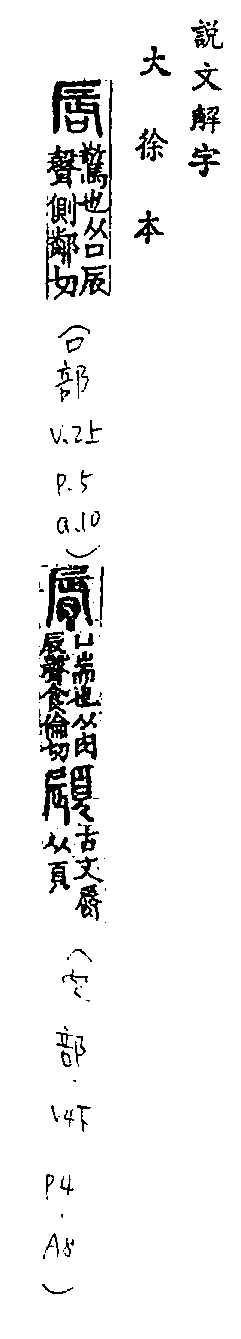 說文解字
大徐本
脣 驚也从口辰
聲側鄰切
(口部
V.2上
P.5
a.10)
脣 口耑也从肉
辰聲食倫切
顧 古文脣
从頁
部.
V4下
P4.
A8
)